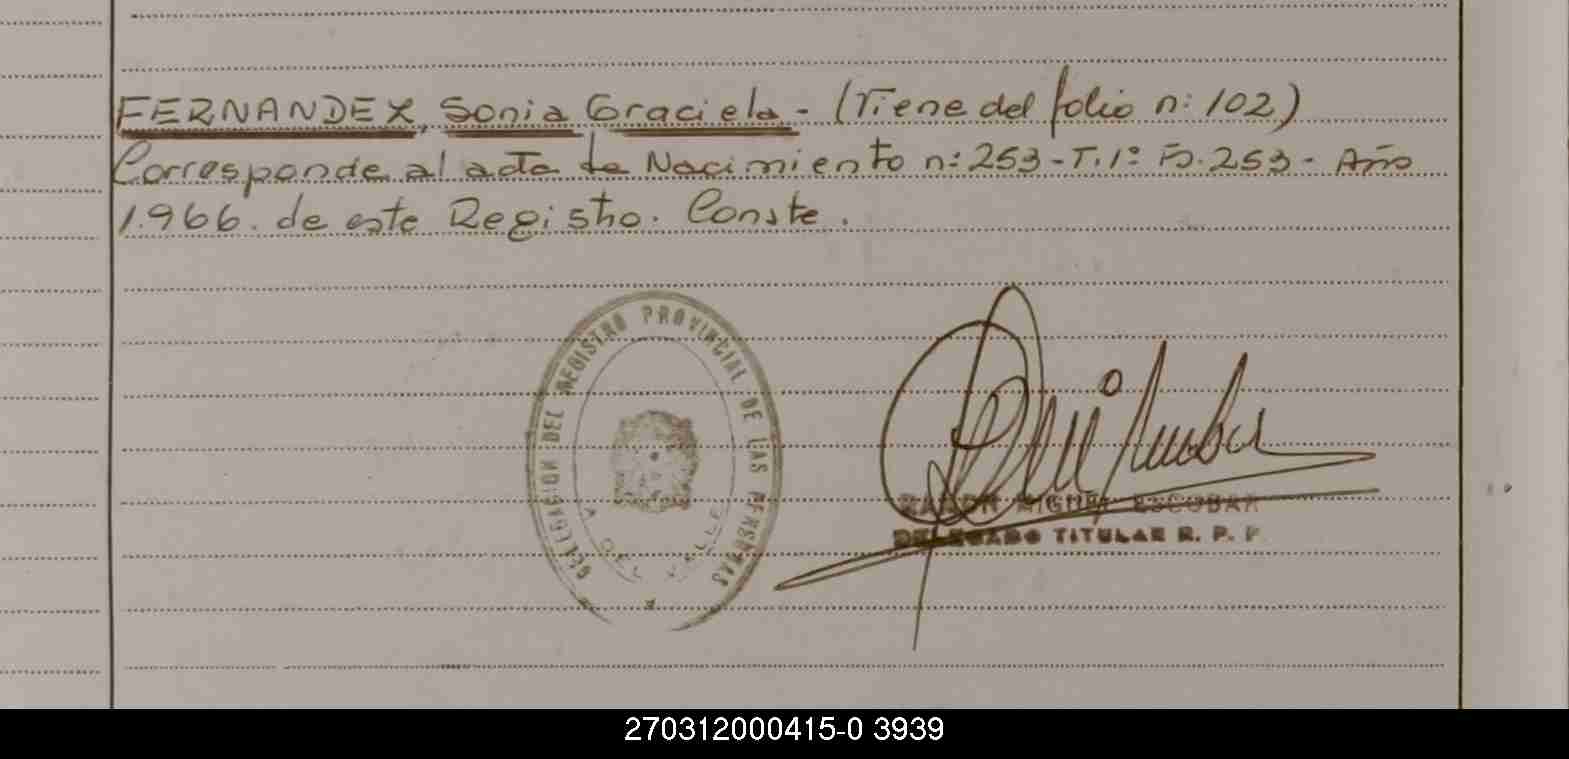 FERNANDEZ, Sonia Graciela - (Viene del folio n: 102)
Corresponde al acta de Nacimiento n: 253 - T. 1º Fº. 253 - Año
1.966. de este Registro. Conste.
DELEGACION DEL REGISTRO PROVINCIAL DE LAS PERSONAS
DEL VALLE
RAMON MIGUEL ESCOBAR
DELEGADO TITULAR R. P. P
270312000415-0 3939